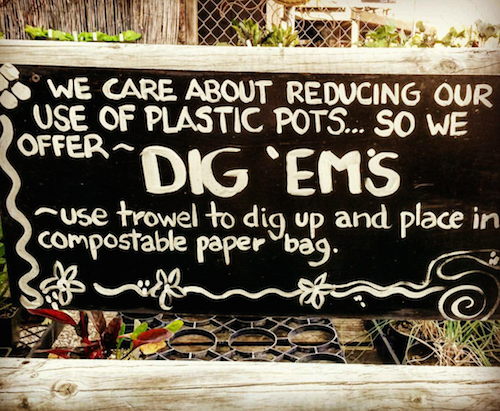 WE CARE ABOUT REDUCING OUR
USE OF PLASTIC POTS... SO WE
OFFER ~
DIG 'EM'S
~use trowel to dig up and place in
compostable paper bag.